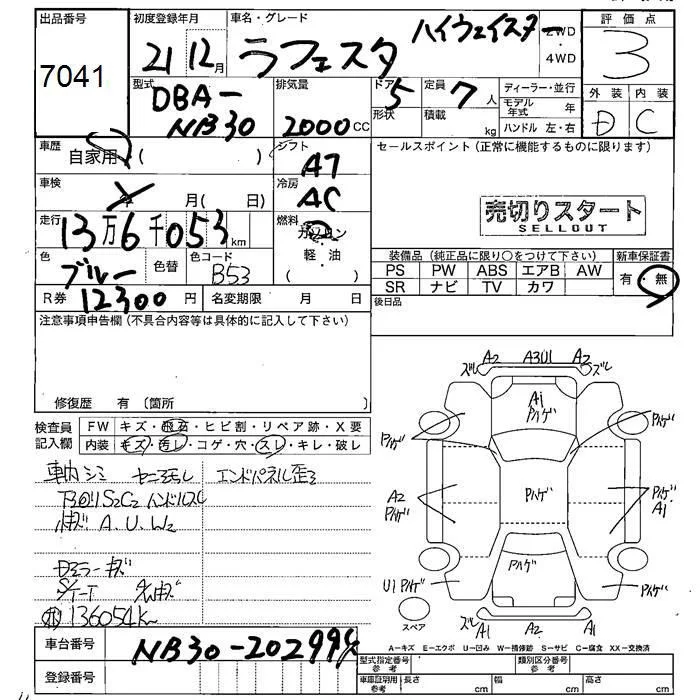 出品番号
7041
初度登録年月
21 12月
車名・グレード
ラフェスタ ハイウェイスター
2WD
・
4WD
評価点
3
外装 内装
D C
型式
DBA-
NB30
排気量
2000cc
ドア
5
形状
定員
7人
積載
kg
ディーラー・並行
モデル年式 年
ハンドル 左・右
車歴
自家用 ( )
シフト
AT
セールスポイント (正常に機能するものに限ります)
車検
年 月( 日)
冷房
AC
売切りスタート
SELLOUT
走行
13万6千053km
燃料
ガソリン
軽・油
色
ブルー
色替
色コード
B53
装備品 (純正品に限り○をつけて下さい)
新車保証書
PS PW ABS エアB AW
SR ナビ TV カワ
有・無
R券 12300円
名変期限 月 日
後日品
注意事項申告欄 (不具合内容等は具体的に記入して下さい)
修復歴 有 〔箇所 〕
検査員記入欄
FW キズ・飛石・ヒビ割・リペア跡・X要
内装 キズ・汚レ・コゲ・穴・スレ・キレ・破レ
エンドパネル歪ミ
A.U.W2
Dミラーキズ
136054K
車台番号
NB30-202994
登録番号
ズレ A2 A3U1 A2 ズレ
A1
Pハゲ
Pハゲ
Pハゲ
A2
Pハゲ
Pハゲ
Pハゲ
A1
Pハゲ
U1 Pハゲ
Pハゲ
スペア
ズレ
A1 A2 A1
A－キズ E－エクボ U－凹み W－補修跡 S－サビ C－腐食 XX－交換済
型式指定番号
参考
類別区分番号
参考
車庫証明用
参考
長さ cm
幅 cm
高さ cm